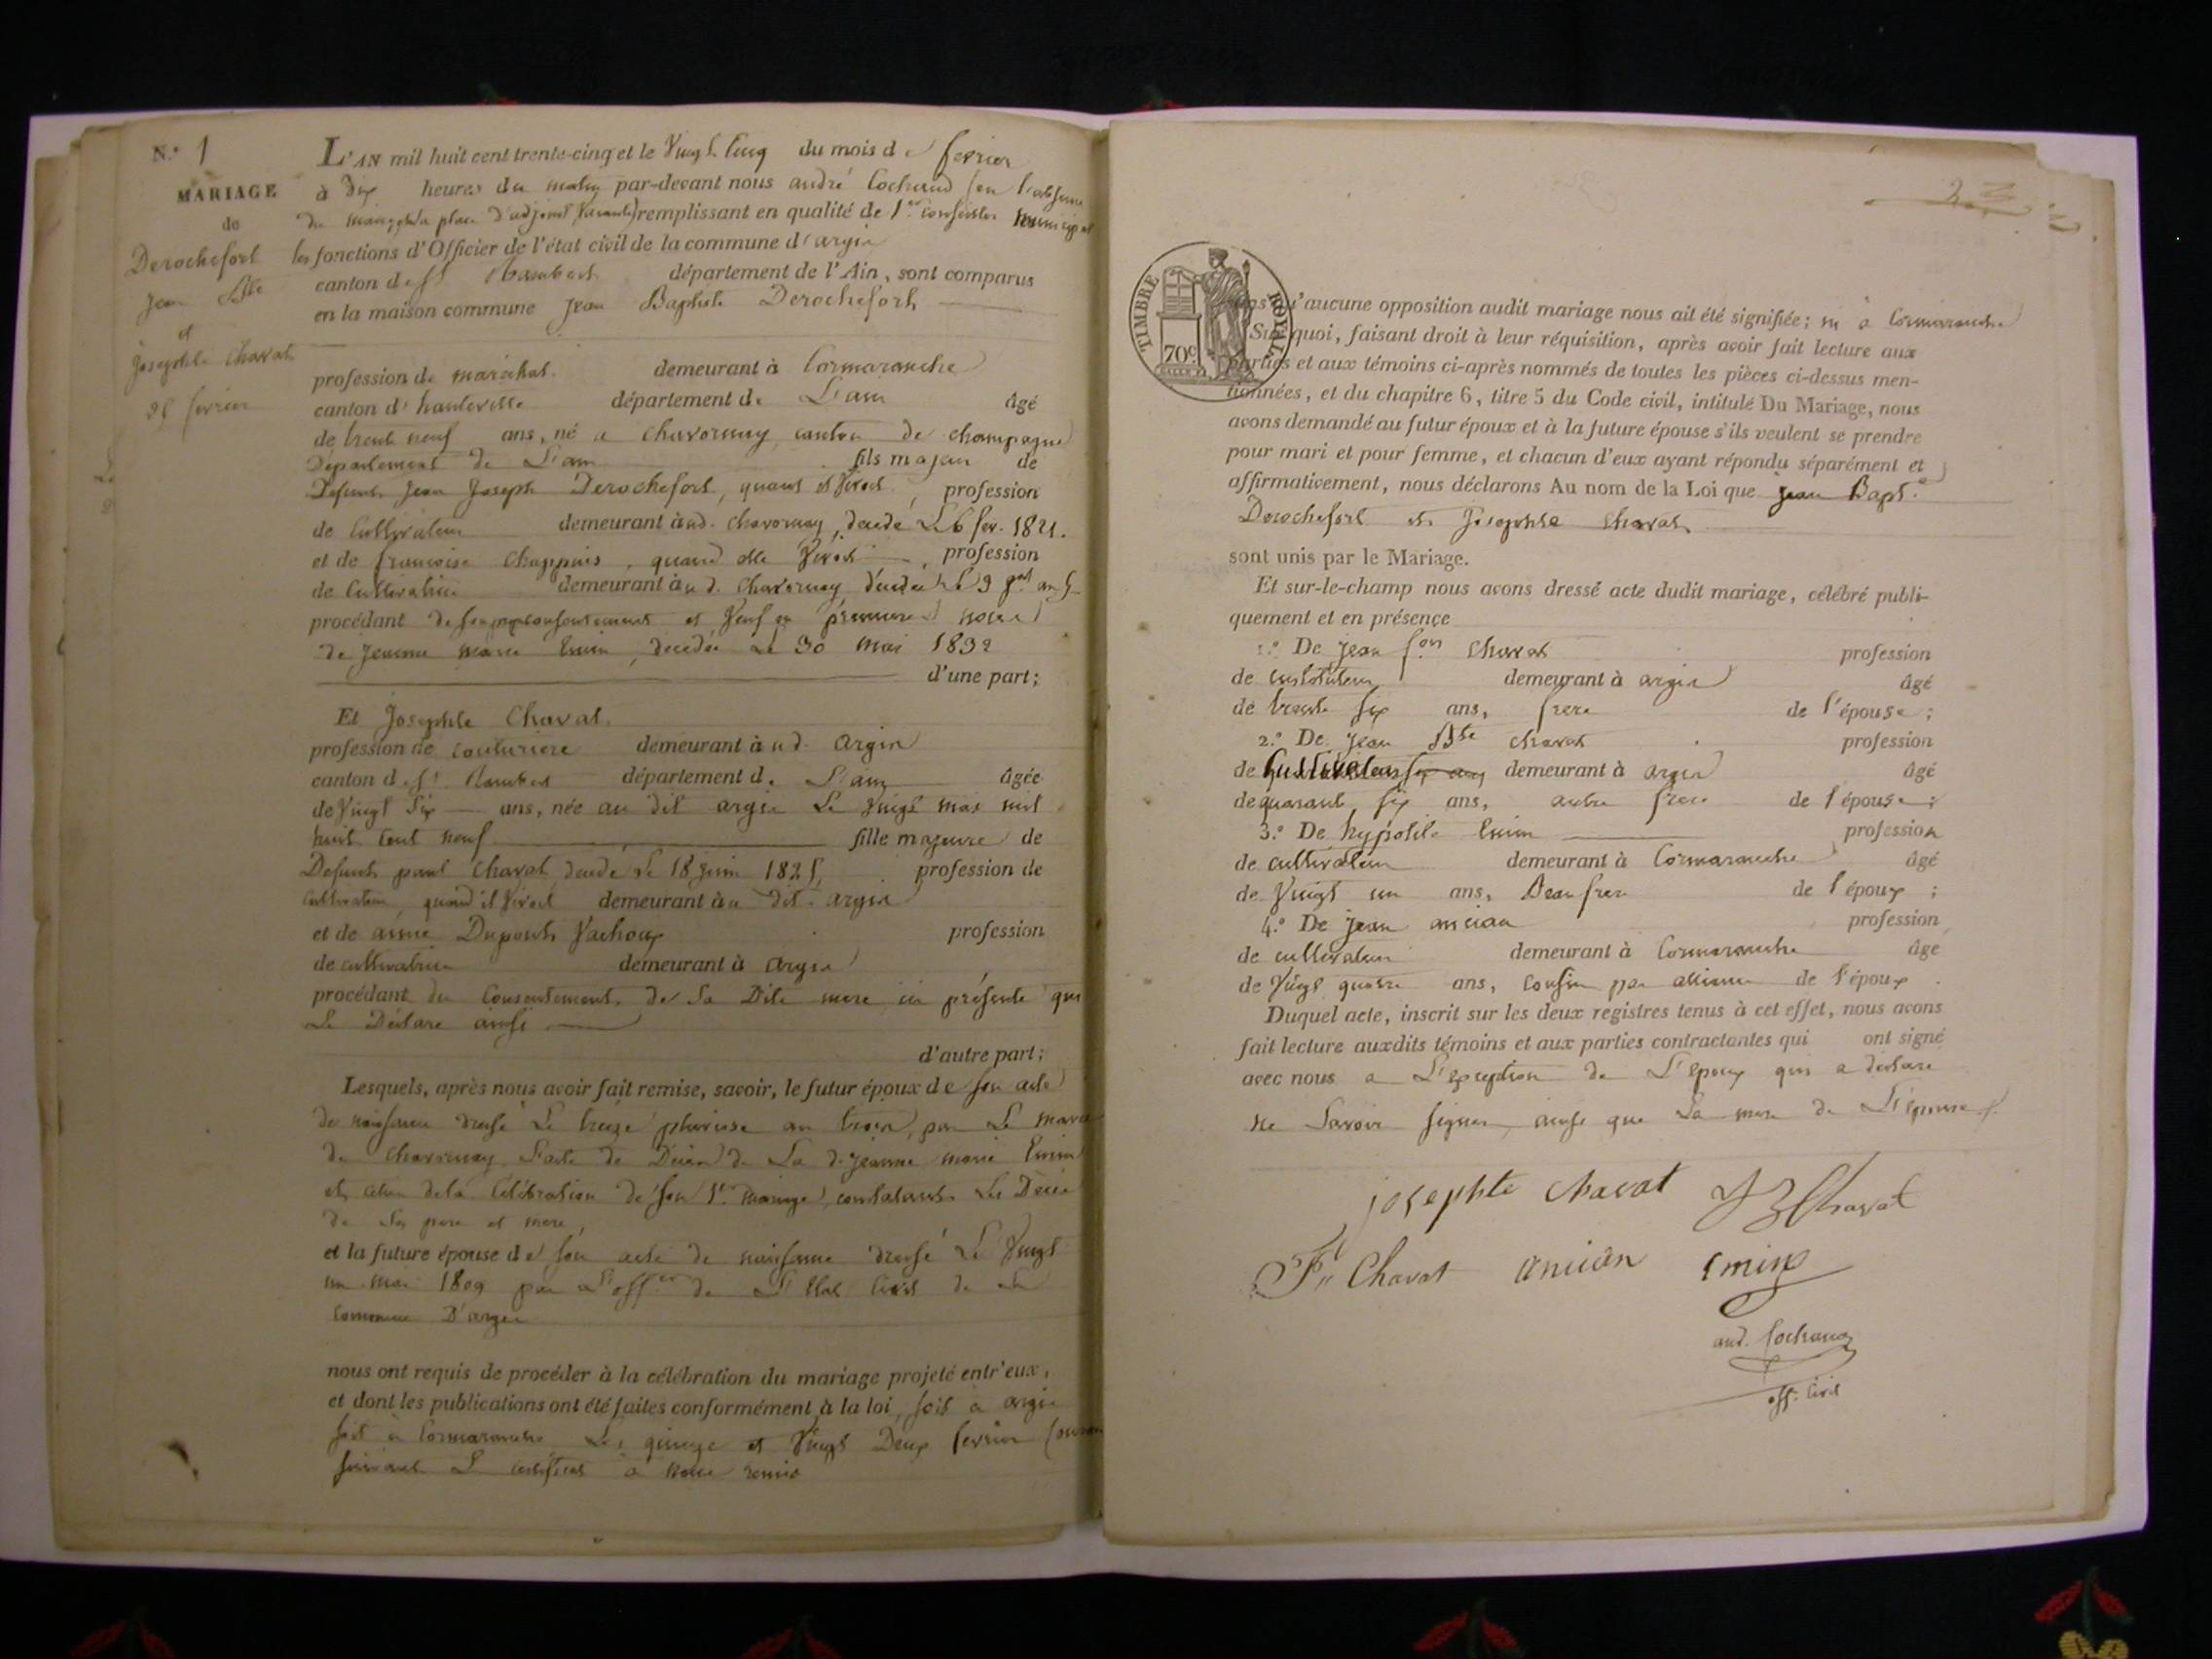 N.° 1
MARIAGE
de
Derochefort
Jean Bte
et
Josephte Chavat
25 fevrier
L'AN mil huit cent trente-cinq et le Vingt Cinq du mois de fevrier
à dix heures du matin par-devant nous andré Cochand (en l'absence
du maire, et la place d'adjoint Vacante) remplissant en qualité de 1er Conseiller municipal
les fonctions d'Officier de l'état civil de la commune d'argis
canton de St Rambert département de l'Ain, sont comparus
en la maison commune Jean Baptiste Derochefort
profession de maréchal demeurant à Cormaranche
canton d'hauteville département de L'ain âgé
de trente neuf ans, né a chavornay, canton de champagne
Departement de L'ain fils majeur de
Defunt Jean Joseph Derochefort, quand il Vivoit, profession
de Cultivateur demeurant à ud. chavornay, décédé Le 6 fev. 1821.
et de francoise Chappuis, quand elle Vivoit, profession
de Cultivatrice demeurant à u d. Chavornay décédée Le 9 an 5
procédant de son propre consentement et Veuf en premieres noces
de jeanne marie Emin, decedée Le 30 mai 1832
d'une part;
Et Josephte Chavat.
profession de couturiere demeurant à ud. argis
canton de St Rambert département de L'ain âgée
de Vingt Six ans, née au dit argis Le Vingt mai mil
huit Cent neuf fille majeure de
Defunt paul Chavat, décédé Le 18 juin 1825, profession de
Cultivateur, quand il Vivoit demeurant à u dit argis
et de anne Dupont Vachoux profession
de cultivatrice demeurant à argis
procédant du Consentement de Sa Dite mere ici présente qui
Le Déclare ainsi
d'autre part;
Lesquels, après nous avoir fait remise, savoir, le futur époux de son acte
de naissance dressé Le treize pluviose an trois, par Le maire
de Chavornay, L'acte de Décès de La d. jeanne marie Emin
et celui de la Célébration de son 1er mariage, constatant Les Décès
de Ses pere et mere,
et la future épouse de son acte de naissance dressé Le Vingt
un mai 1809 par L'offer de L'Etat Civil de la
commune D'argis
nous ont requis de procéder à la célébration du mariage projeté entr'eux,
et dont les publications ont été faites conformément à la loi, soit à argis
soit à Cormaranche Les quinze et Vingt Deux fevrier
suivant Le certificat à nous remis
TIMBRE ROYAL
70c
qu'aucune opposition audit mariage nous ait été signifiée; ni à Cormaranche
Sur quoi, faisant droit à leur réquisition, après avoir fait lecture aux
parties et aux témoins ci-après nommés de toutes les pièces ci-dessus men-
tionnées, et du chapitre 6, titre 5 du Code civil, intitulé Du Mariage, nous
avons demandé au futur époux et à la future épouse s'ils veulent se prendre
pour mari et pour femme, et chacun d'eux ayant répondu séparément et
affirmativement, nous déclarons Au nom de la Loi que Jean Bapt.e
Derochefort et Josephte Chavat
sont unis par le Mariage.
Et sur-le-champ nous avons dressé acte dudit mariage, célébré publi-
quement et en présence
1.° De Jean fois Chavat profession
de instituteur demeurant à argis âgé
de trente six ans, frere de l'épouse;
2.° De Jean Bte chavat profession
de Cultivateur demeurant à argis âgé
de quarante six ans, autre frere de l'épouse;
3.° De hypolite Emin profession
de cultivateur demeurant à Cormaranche âgé
de Vingt un ans, Beau frere de l'époux;
4.° De jean ancian profession
de cultivateur demeurant à Cormaranche âgé
de Vingt quatre ans, Cousin par alliance de l'époux.
Duquel acte, inscrit sur les deux registres tenus à cet effet, nous avons
fait lecture auxdits témoins et aux parties contractantes qui ont signé
avec nous a L'exception de L'époux qui a déclaré
ne Savoir signer, ainsi que La mere de L'épouse.
josephte chavat JB Chavat
Fs Chavat ancian Emin
and. Cochand
off. Civil